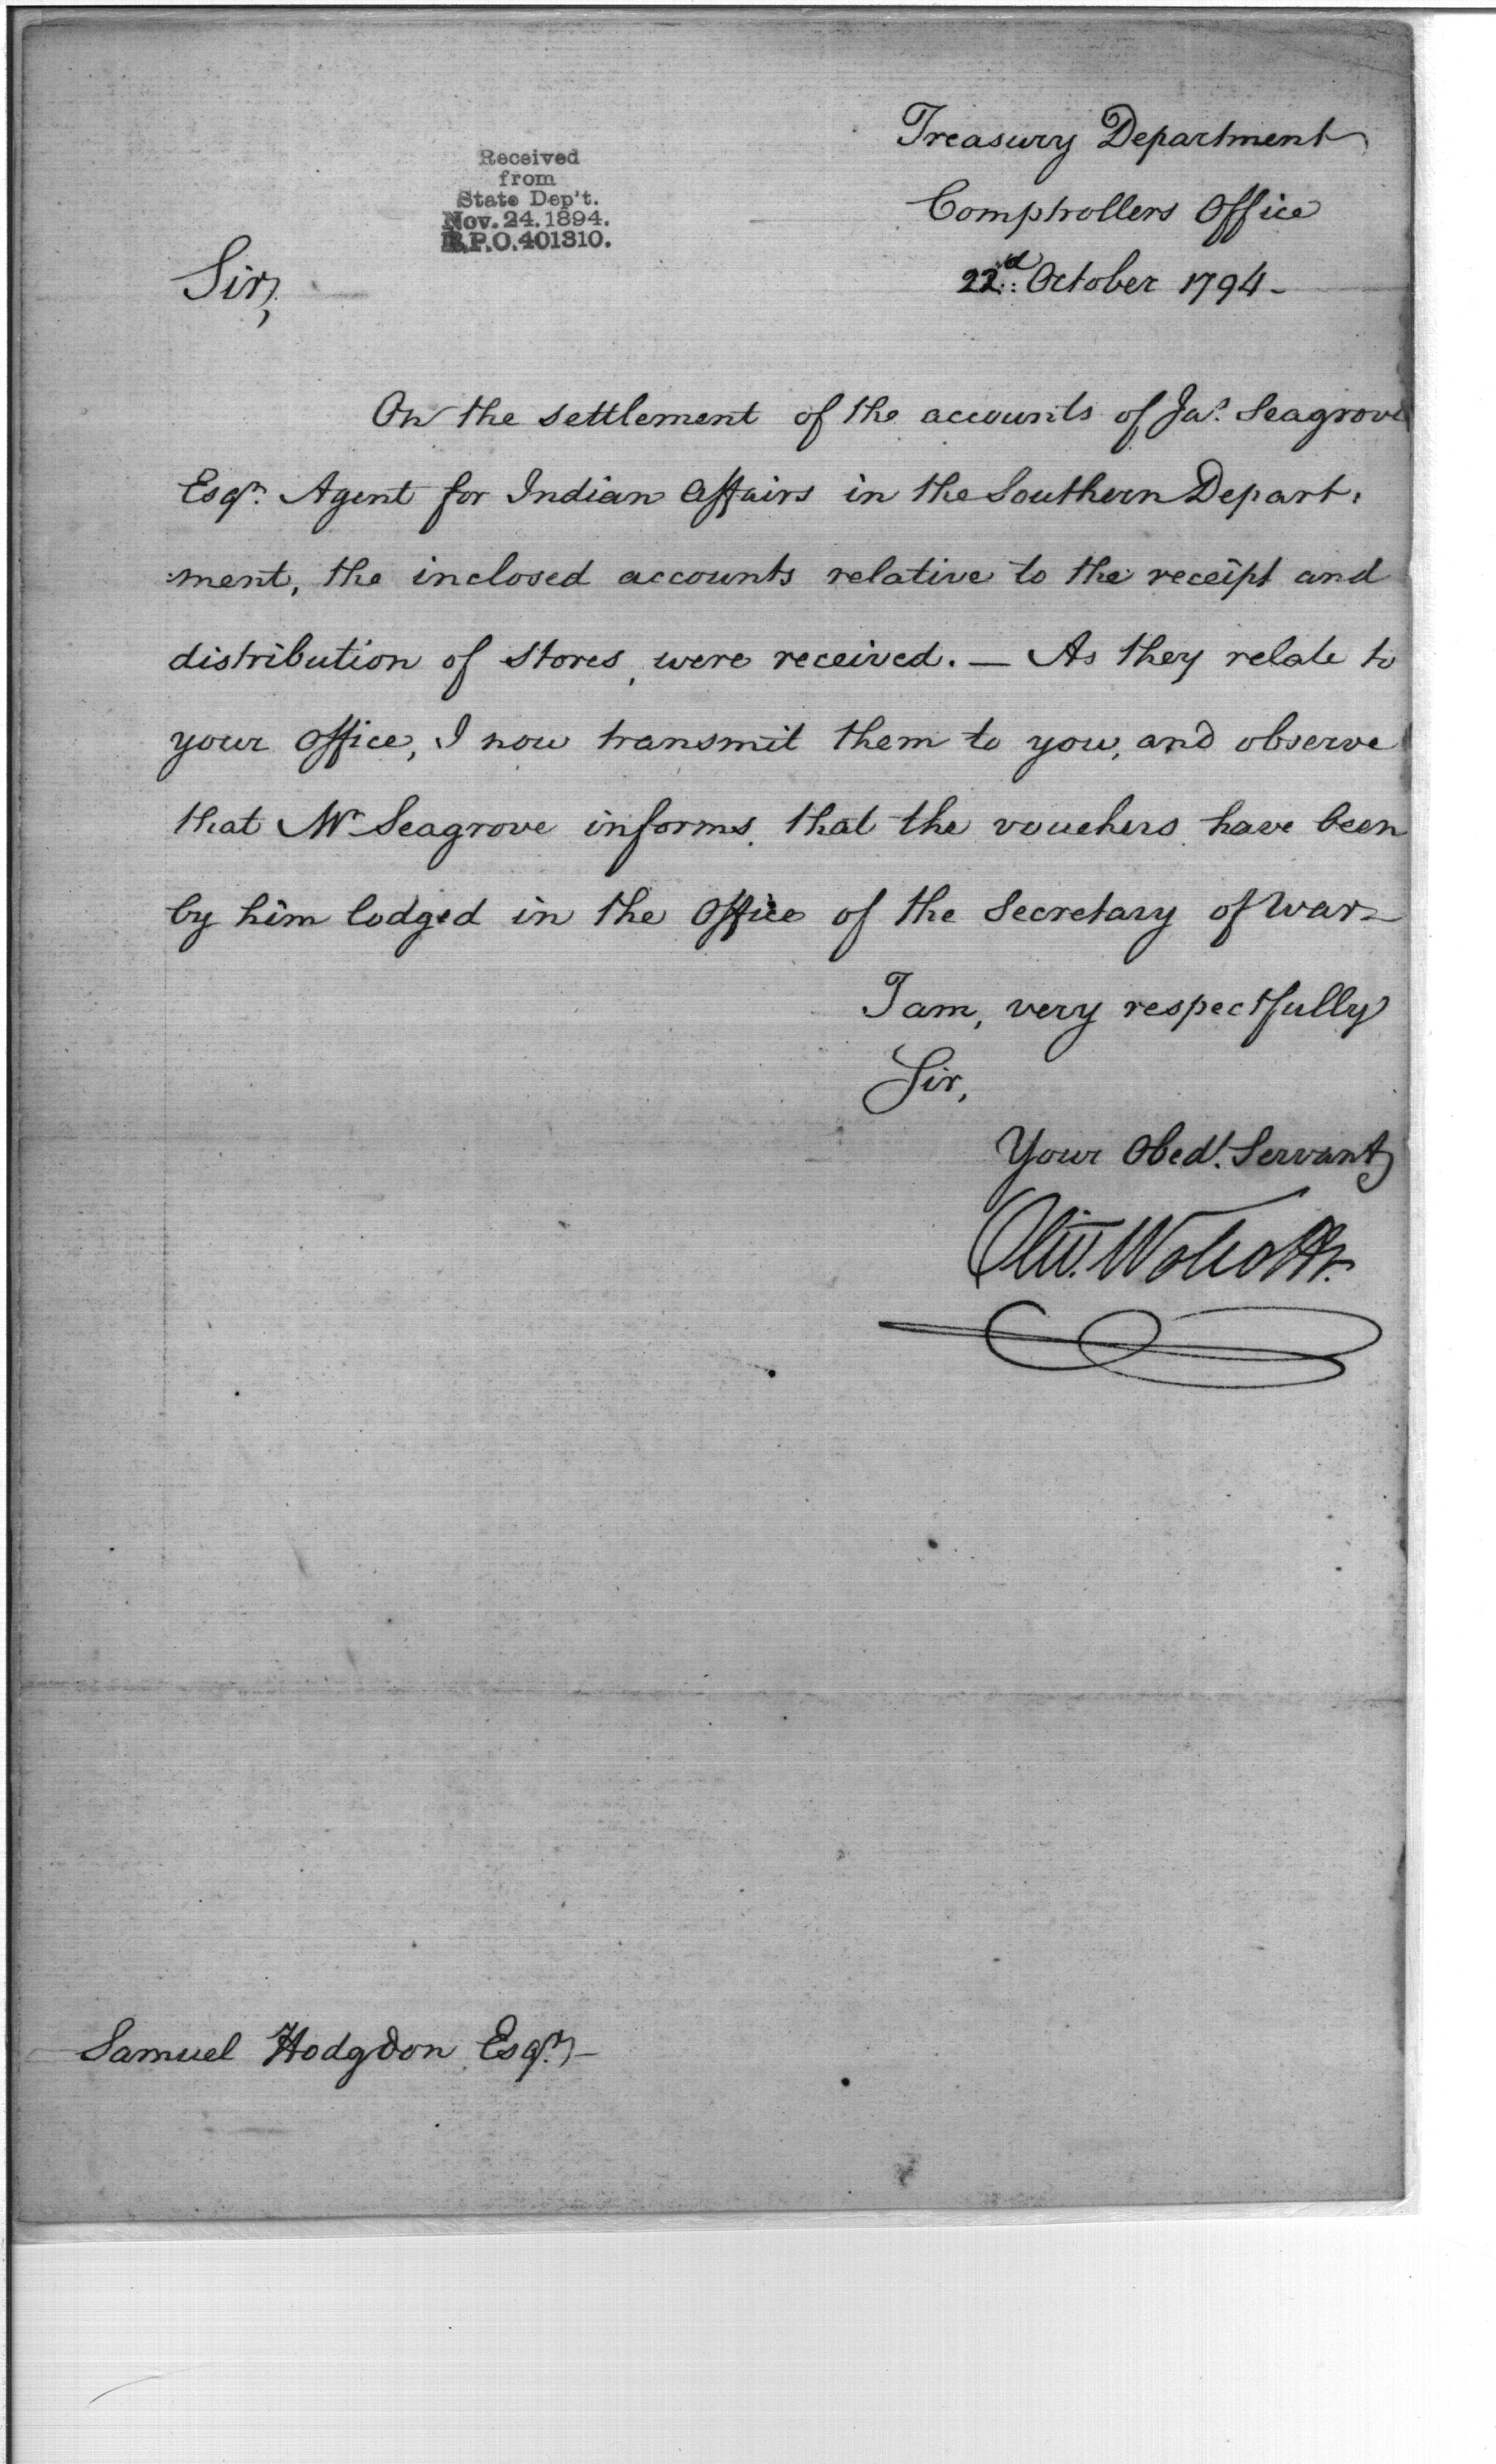 Treasury Department
Comptrollers Office
22d. October 1794-
Received
from
State Dep't.
Nov. 24. 1894.
R.P.O. 401310.
Sir,
On the settlement of the accounts of Jas. Seagrove
Esqr. Agent for Indian Affairs in the Southern Depart:
:ment, the inclosed accounts relative to the receipt and
distribution of stores, were received. — As they relate to
your office, I now transmit them to you, and observe
that Mr Seagrove informs, that the vouchers have been
by him lodged in the office of the Secretary of War-
I am, very respectfully
Sir,
Your Obedt. Servant
Oliv. Wolcott Jr.
Samuel Hodgdon Esqr. -